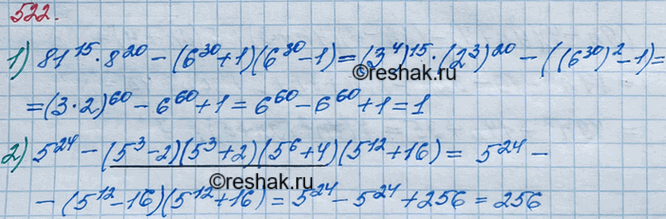 522.
1) 81¹⁵·8²⁰ − (6³⁰+1)(6³⁰−1) = (3⁴)¹⁵·(2³)²⁰ − ((6³⁰)²−1) =
= (3·2)⁶⁰ − 6⁶⁰ + 1 = 6⁶⁰ − 6⁶⁰ + 1 = 1
reshak.ru
2) 5²⁴ − (5³−2)(5³+2)(5⁶+4)(5¹²+16) = 5²⁴ −
reshak.ru
− (5¹²−16)(5¹²+16) = 5²⁴ − 5²⁴ + 256 = 256